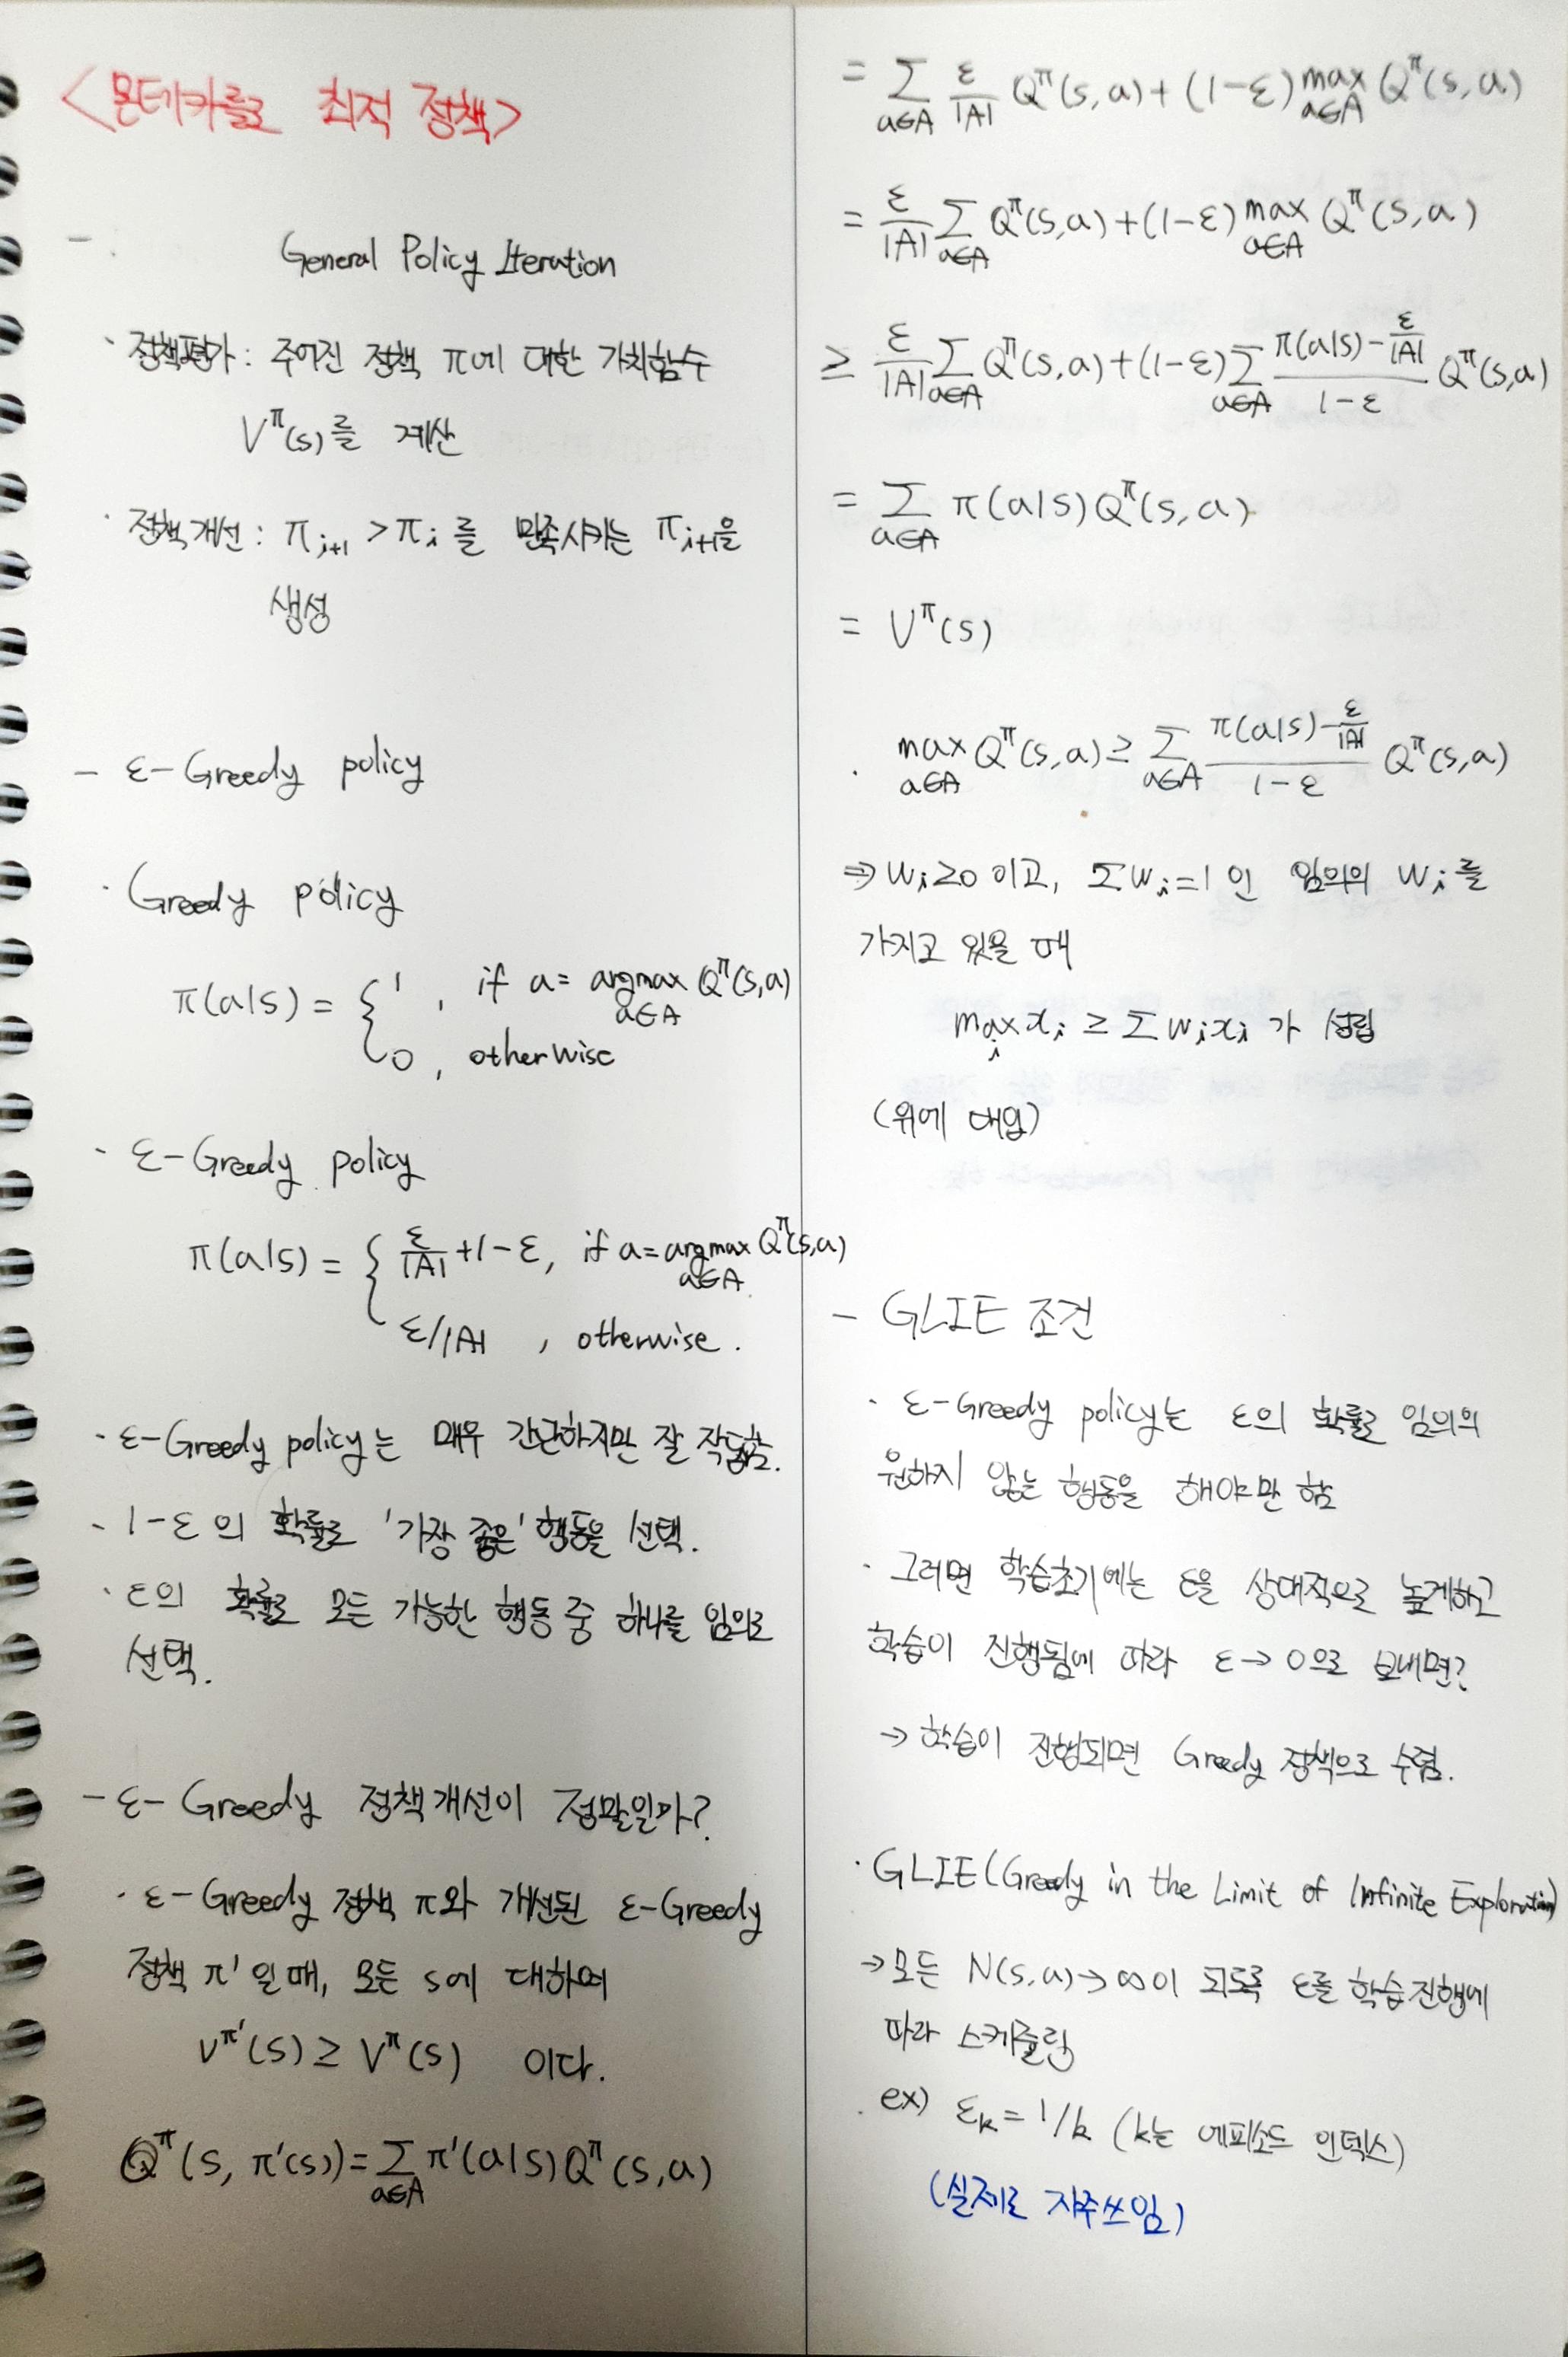 <몬테카를로 최적 정책>
- General Policy Iteration
· 정책평가 : 주어진 정책 π에 대한 가치함수
V^π(s)를 계산
· 정책개선 : π_{i+1} > π_i 를 만족시키는 π_{i+1}을
생성
- ε-Greedy policy
· Greedy policy
π(a|s) = { 1 , if a = argmax_{a∈A} Q^π(s,a)
0 , otherwise
· ε-Greedy policy
π(a|s) = { ε/|A| + 1 - ε, if a = argmax_{a∈A} Q^π(s,a)
ε/|A| , otherwise.
· ε-Greedy policy는 매우 간단하지만 잘 작동함.
· 1-ε의 확률로 '가장 좋은' 행동을 선택.
· ε의 확률로 모든 가능한 행동 중 하나를 임의로
선택.
- ε-Greedy 정책개선이 정말일까?
· ε-Greedy 정책 π와 개선된 ε-Greedy
정책 π'일 때, 모든 s에 대하여
V^{π'}(s) ≥ V^π(s) 이다.
Q^π(s, π'(s)) = Σ_{a∈A} π'(a|s) Q^π(s,a)
= Σ_{a∈A} ε/|A| Q^π(s,a) + (1-ε) max_{a∈A} Q^π(s,a)
= ε/|A| Σ_{a∈A} Q^π(s,a) + (1-ε) max_{a∈A} Q^π(s,a)
≥ ε/|A| Σ_{a∈A} Q^π(s,a) + (1-ε) Σ_{a∈A} (π(a|s) - ε/|A|)/(1-ε) Q^π(s,a)
= Σ_{a∈A} π(a|s) Q^π(s,a)
= V^π(s)
· max_{a∈A} Q^π(s,a) ≥ Σ_{a∈A} (π(a|s) - ε/|A|)/(1-ε) Q^π(s,a)
⇒ w_i ≥ 0 이고, Σw_i = 1 인 임의의 w_i를
가지고 있을 때
max_i x_i ≥ Σ w_i x_i 가 성립
(위에 대입)
- GLIE 조건
· ε-Greedy policy는 ε의 확률로 임의의
원하지 않는 행동을 해야만 함
· 그러면 학습초기에는 ε을 상대적으로 높게하고
학습이 진행됨에 따라 ε → 0으로 보내면?
→ 학습이 진행되면 Greedy 정책으로 수렴.
· GLIE (Greedy in the Limit of Infinite Exploration)
→ 모든 N(s,a) → ∞이 되도록 ε를 학습진행에
따라 스케줄링
ex) ε_k = 1/k (k는 에피소드 인덱스)
(실제로 자주쓰임)